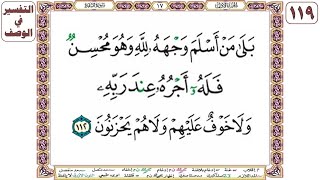 ١١٩
التفسير
في
الوصف
١٧
بَلَىٰ مَنْ أَسْلَمَ وَجْهَهُۥ لِلَّهِ وَهُوَ مُحْسِنٌ
فَلَهُۥٓ أَجْرُهُۥ عِندَ رَبِّهِۦ
وَلَا خَوْفٌ عَلَيْهِمْ وَلَا هُمْ يَحْزَنُونَ ١١٢